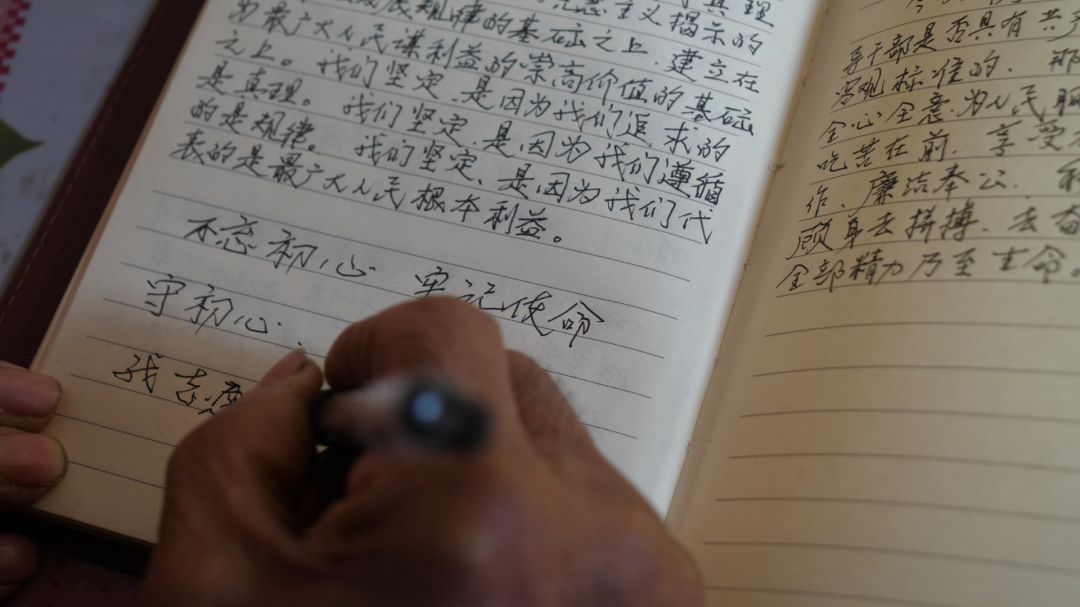 展规律的基础之上.建立在
为最广大人民谋利益的崇高价值的基础
之上。我们坚定.是因为我们追求的
是真理。我们坚定.是因为我们遵循
的是规律。我们坚定、是因为我们代
表的是最广大人民根本利益。
不忘初心 牢记使命
守初心.
我志愿
导干部是否具有共产
客观标准的.那
全心全意为人民服
吃苦在前.享受在
作、廉洁奉公.
顾身去拼搏、去奋
全部精力乃至生命。